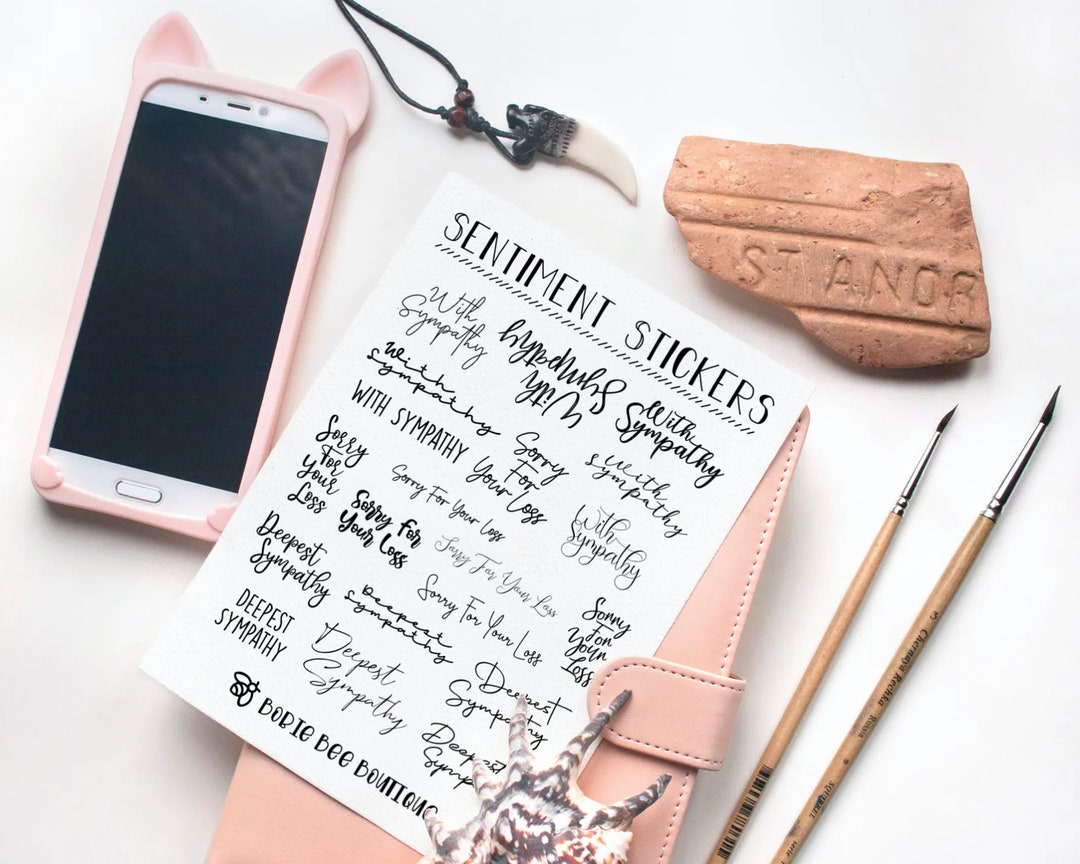 SENTIMENT STICKERS
With
Sympathy
With
Sympathy
With
Sympathy
with
sympathy
WITH SYMPATHY
Sorry
For
Your Loss
with
sympathy
Sorry
For
Your
Loss
Sorry For Your Loss
With
Sympathy
Sorry For
Your Loss
Sorry For Your Loss
Deepest
Sympathy
Deepest
sympathy
Sorry For Your Loss
Sorry
For
Your
Loss
DEEPEST
SYMPATHY
Deepest
Sympathy
Deepest
Sympathy
Deepest
BOBIE BEE BOUTIQUE
3 Chernaya Rechka Russia
SQUIRREL